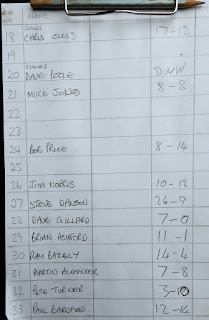 NAME
SCALES
18 CHRIS OLLIS 17-12
19
SCALES
20 DAVE POOLE DNW
21 MIKE JONES 8-8
22
23
24 ROB PRICE 8-14
25
26 JIM NORRIS 10-12
27 STEVE DAWSON 26-9
28 DAVE GILLARD 7-0
29 BRIAN ASHFORD 11-1
30 RAY BAZELEY 14-4
31 MARTIN ALEXANDER 7-8
32 PETE TURNER 3-10
33 PAUL BARDFORD 12-14